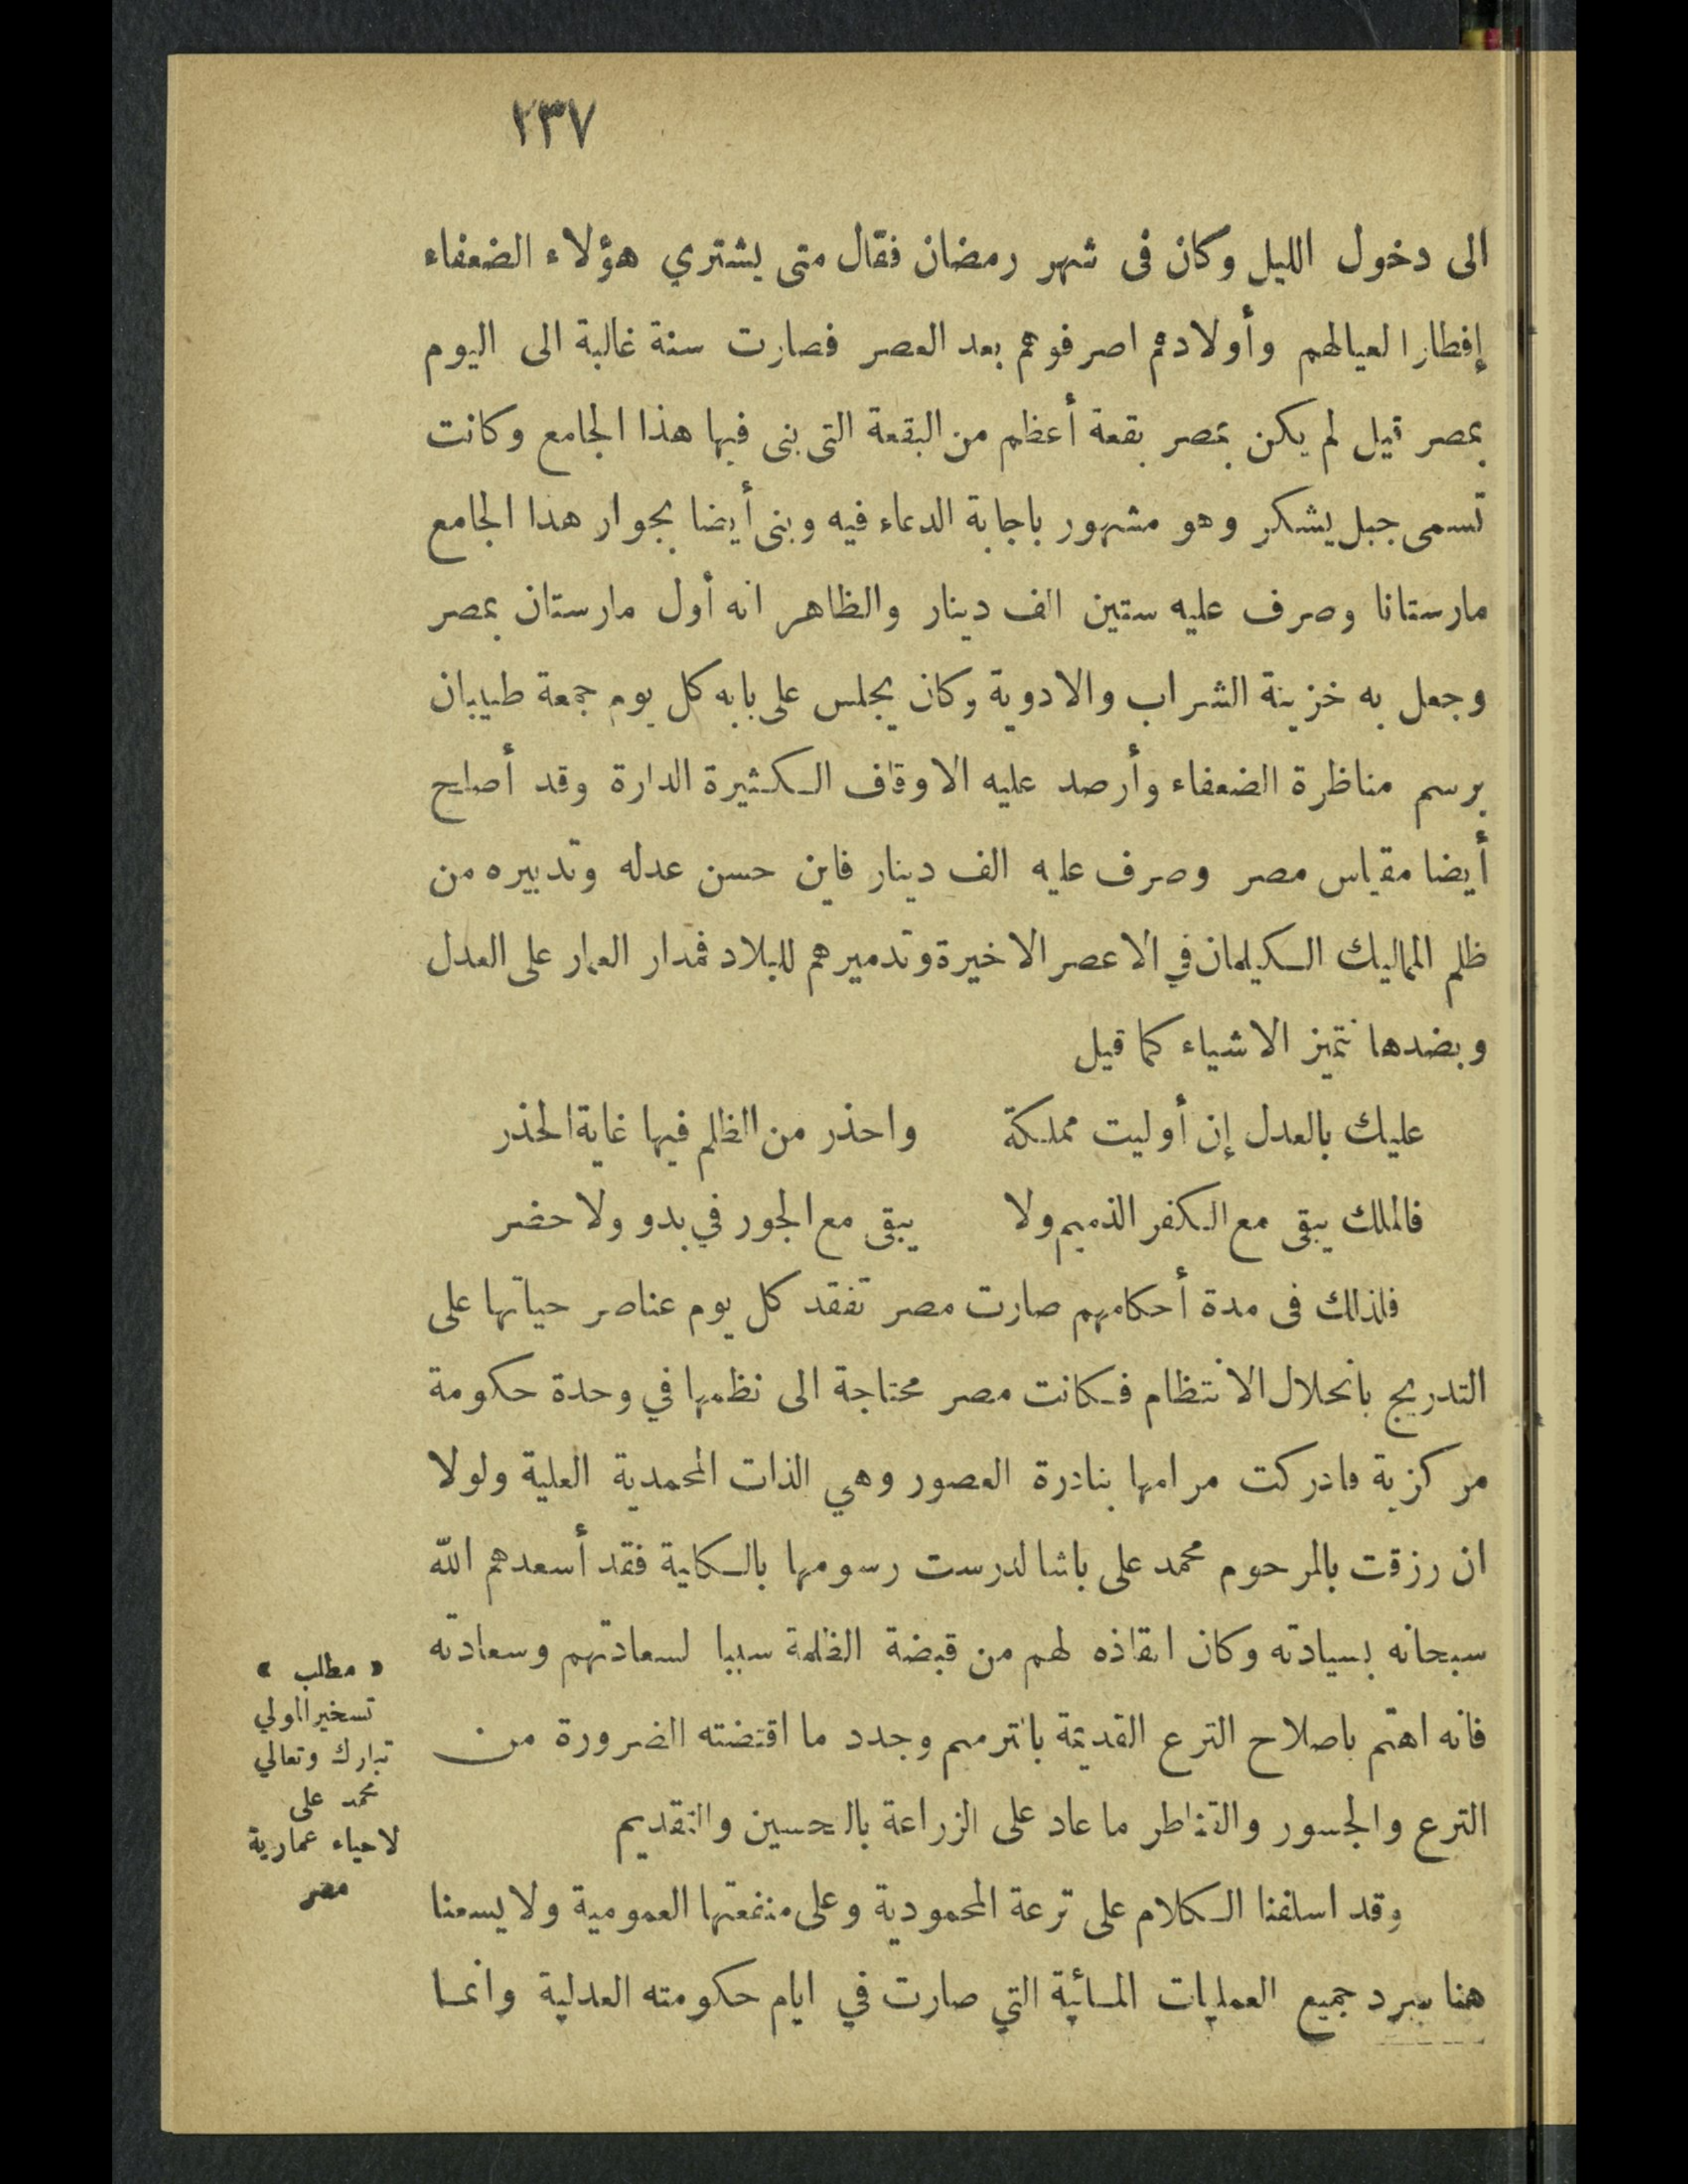 ٢٣٧
الى دخول الليل وكان فى شهر رمضان فقال متى يشتري هؤلاء الضعفاء
إفطارا لعيالهم وأولادهم اصرفوهم بعد العصر فصارت سنة غالبة الى اليوم
بمصر قيل لم يكن بمصر بقعة أعظم من البقعة التى بنى فيها هذا الجامع وكانت
تسمى جبل يشكر وهو مشهور باجابة الدعاء فيه وبنى أيضا بجوار هذا الجامع
مارستانا وصرف عليه ستين الف دينار والظاهر انه أول مارستان بمصر
وجعل به خزينة الشراب والادوية وكان يجلس على بابه كل يوم جمعة طبيبان
برسم مناظرة الضعفاء وأرصد عليه الاوقاف الكثيرة الدارة وقد أصلح
أيضا مقياس مصر وصرف عليه الف دينار فاين حسن عدله وتدبيره من
ظلم المماليك الكيلمان في الاعصر الاخيرة وتدميرهم للبلاد فمدار العمار على العدل
وبضدها تتميز الاشياء كما قيل
عليك بالعدل إن أوليت مملكة واحذر من الظلم فيها غاية الحذر
فالملك يبقى مع الكفر الذميم ولا يبقى مع الجور في بدو ولا حضر
فلذلك فى مدة أحكامهم صارت مصر تفقد كل يوم عناصر حياتها على
التدريج بانحلال الانتظام فكانت مصر محتاجة الى نظمها في وحدة حكومة
مركزية فادركت مرامها بنادرة العصور وهي الذات المحمدية العلية ولولا
ان رزقت بالمرحوم محمد على باشا لدرست رسومها بالكلية فقد أسعدهم الله
سبحانه بسيادته وكان انقاذه لهم من قبضة الظلمة سببا لسعادتهم وسعادته
فانه اهتم باصلاح الترع القديمة بالترميم وجدد ما اقتضته الضرورة من
الترع والجسور والقناطر ما عاد على الزراعة بالتحسين والتقديم
وقد اسلفنا الكلام على ترعة المحمودية وعلى منفعتها العمومية ولا يسعنا
هنا سرد جميع العمليات المائية التي صارت في ايام حكومته العدلية وانما
« مطلب »
تسخير المولي
تبارك وتعالي
محمد على
لاحياء عمارية
مصر